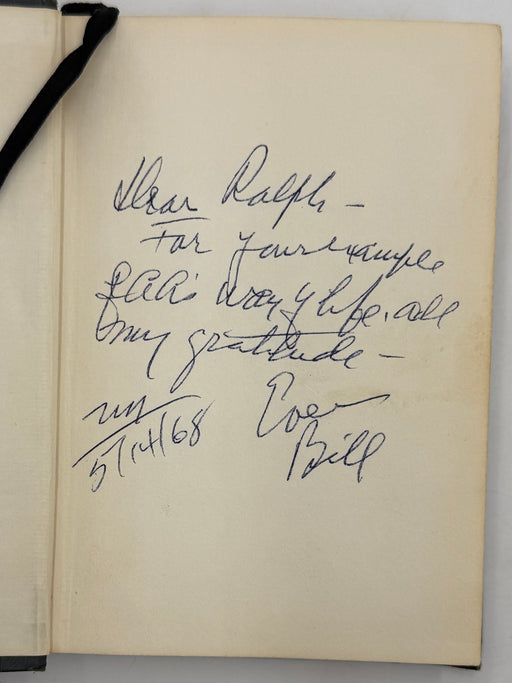 Dear Ralph –
For your example
of AA's way of life, all
my gratitude –
Ever
Bill
NY
5/14/68